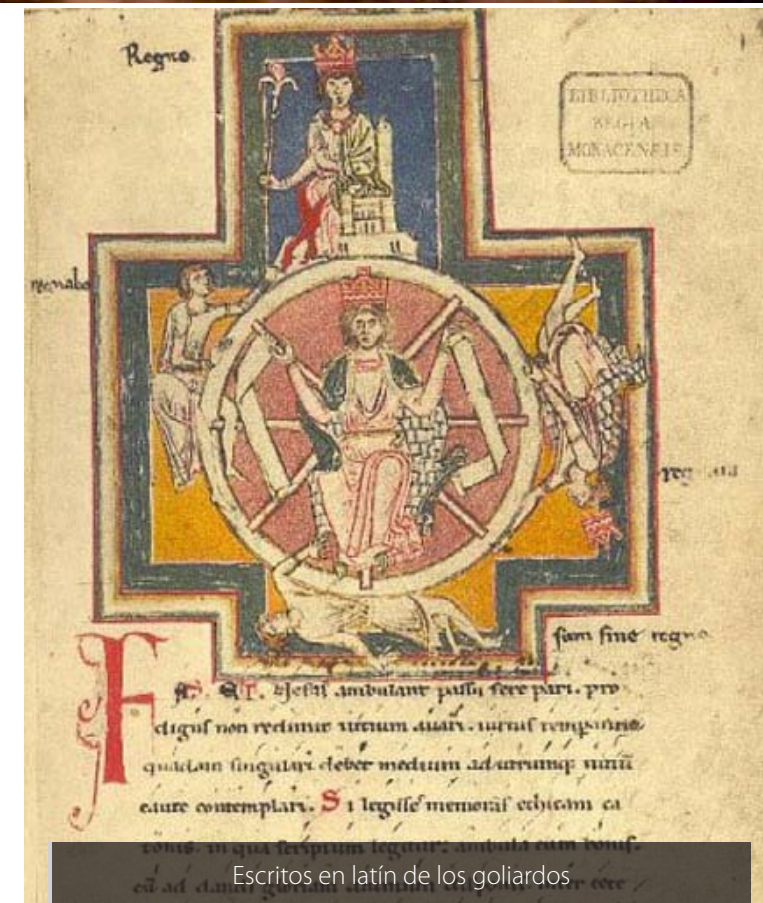 Regno
BIBLIOTHECA
REGIA
MONACENSIS
regnabo
sum sine regno
ambulant passu fere pari. pro
digus non redimit uitium auari. uirtus
quadam singulari debet medium ad utrumq;
caute contemplari. Si legisse memoras ethicam ca
tonis. in qua scriptum legitur: ambula cum bonis.
Escritos en latín de los goliardos